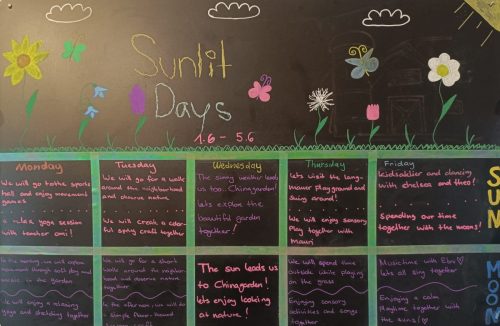 Sunlit
Days
1.6 - 5.6
Monday
We will go to the sports
hall and enjoy movement
games
a relax yoga session
with teacher
Tuesday
We will go for a walk
around the neighborhood
and observe nature
We will create a color-
ful spring craft together
Wednesday
The sunny weather leads
us too... Chinagarden!
lets explore the
beautiful garden
together !
Thursday
lets visit the long-
mauer playground and
swing around!
We will enjoy sensory
Play together with
Mauri
Friday
kidsdakier and dancing
with chelsea and theo!
Spending our time
together with the moons!
SUN
In the morning, we will explore
movement through soft play and
music in the garden
We will enjoy a relaxing
yoga and stretching
together
We will go for a short
walk around the neighbor-
hood and observe nature
together
In the afternoon, we will do
a simple flower-themed
The sun leads us
to Chinagarden!
lets enjoy looking
at nature !
We will spend time
outside while playing
on the grass
Enjoying sensory
activities and songs
together
Musictime with Ebru
lets all sing together
Enjoying a calm
Playtime together with
the suns!
MOON